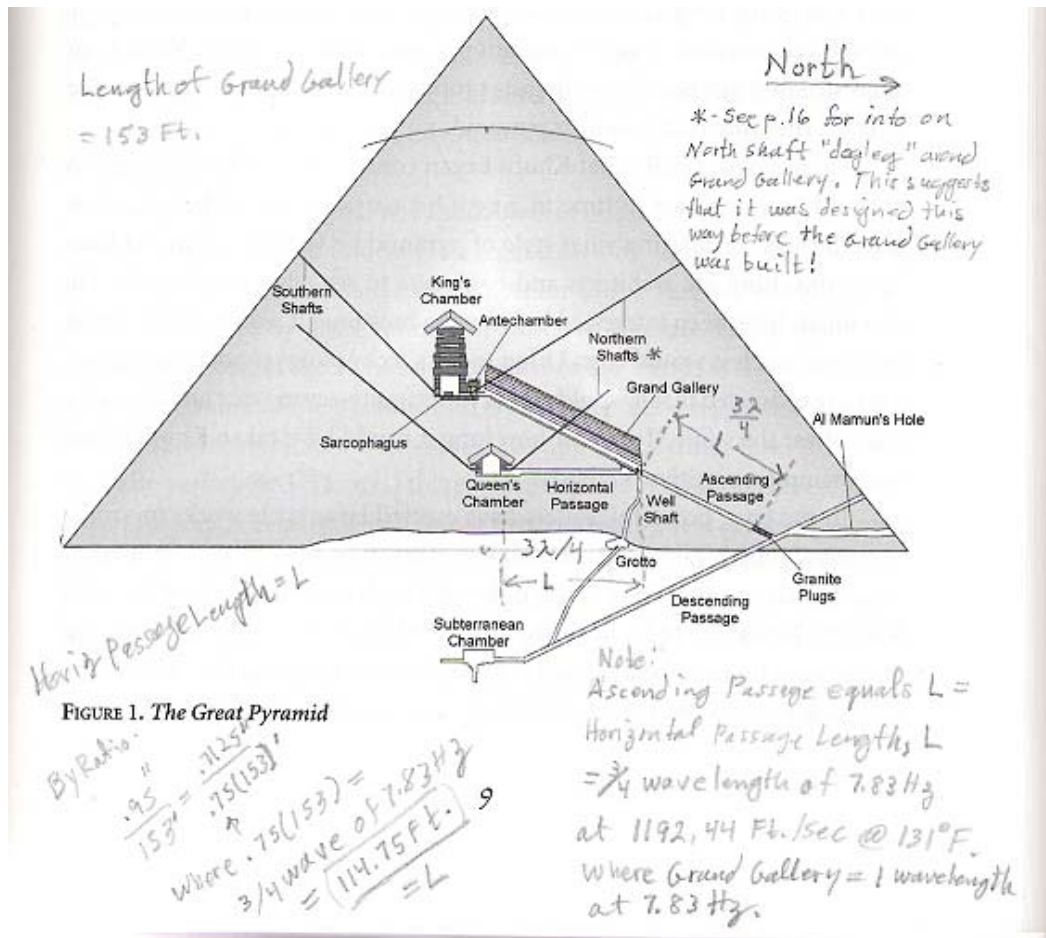 Length of Grand Gallery
= 153 Ft.
North →
*- See p.16 for info on
North shaft "dogleg" around
Grand Gallery. This suggests
that it was designed this
way before the Grand Gallery
was built!
Southern
Shafts
King's
Chamber
Antechamber
Northern
Shafts *
Grand Gallery
3λ
4
L
Al Mamun's Hole
Sarcophagus
Queen's
Chamber
Horizontal
Passage
Well
Shaft
Ascending
Passage
3λ/4
Grotto
L
Granite
Plugs
Descending
Passage
Subterranean
Chamber
Horiz Passage Length = L
FIGURE 1. The Great Pyramid
By Ratio:
.95" / 153' = .7125" / .75(153)'
where .75(153) =
3/4 wave of 7.83 Hz
= 114.75 Ft.
= L
9
Note:
Ascending Passage equals L =
Horizontal Passage Length, L
= 3/4 wavelength of 7.83 Hz
at 1192.44 Ft./sec @ 131°F.
where Grand Gallery = 1 wavelength
at 7.83 Hz.